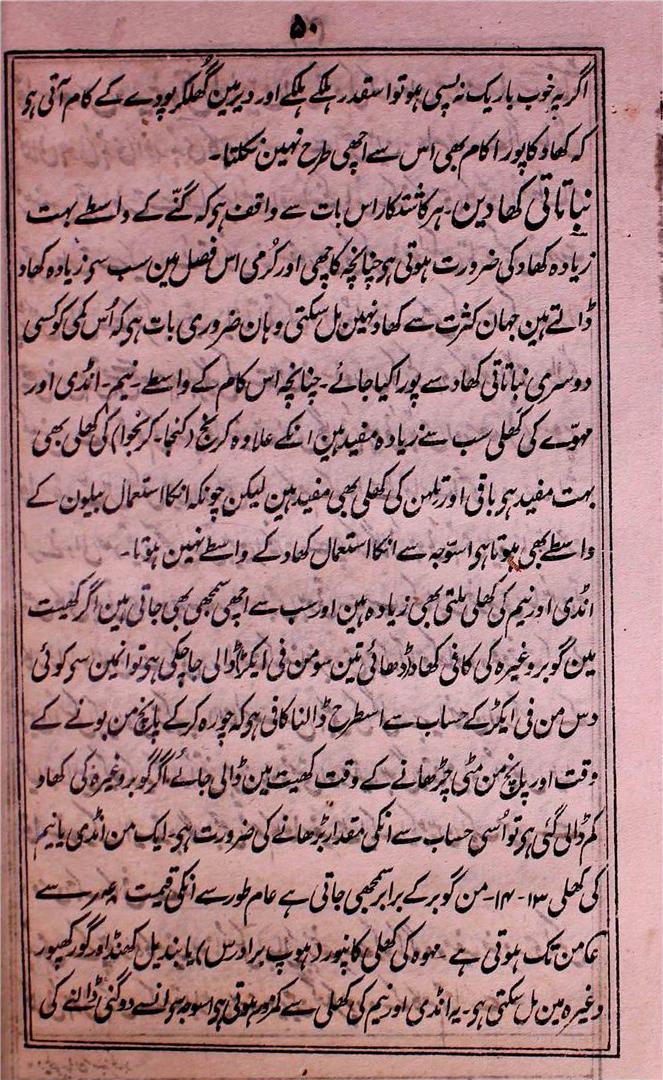 ۵۰
اگر یہ خوب باریک نہ پسی ہو تو اسقدر ہلکے ہلکے اور دیر مین گھلکر پودے کے کام آتی ہو
کہ کھاد کا پورا کام بھی اس سے اچھی طرح نہین نکلتا۔
نباتاتی کھادین۔ ہر کاشتکار اس بات سے واقف ہو کہ گنّے کے واسطے بہت
زیادہ کھاد کی ضرورت ہوتی ہو چنانچہ کاچھی اور کُرمی اس فصل مین سب سو زیادہ کھاد
ڈالتے ہین جہان کثرت سے کھاد نہین مل سکتی وہان ضروری بات ہو کہ اُس کمی کو کسی
دوسری نباتاتی کھاد سے پورا کیا جائے۔ چنانچہ اس کام کے واسطے۔ نیم۔ انڈی اور
مہوّے کی کھلی سب سے زیادہ مفید ہین انکے علاوہ کرنج (کنجا۔ کرنجوا) کی کھلی بھی
بہت مفید ہو باقی اور تلہن کی کھلی بھی مفید ہین لیکن چونکہ انکا استعمال بیلون کے
واسطے بھی ہوتا ہو اسوّجہ سے انکا استعمال کھاد کے واسطے نہین ہوتا۔
انڈی اور نیم کی کھلی ملتی بھی زیادہ ہین اور سب سے اچھی سمجھی بھی جاتی ہین اگر کھیت
مین گوبر وغیرہ کی کافی کھاد ڈھائی تین سو من فی ایکڑ ڈالی جا چکی ہو تو انمین سو کوئی
دس من فی ایکڑ کے حساب سے اسطرح ڈالنا کافی ہو کہ چورہ کر کے پانچ من بونے کے
وقت اور پانچ من مٹی چڑھانے کے وقت کھیت مین ڈالی جائے اگر گوبر وغیرہ کی کھاد
کم ڈالی گئی ہو تو اُسی حساب سے انکی مقدار بڑھانے کی ضرورت ہو۔ ایک من انڈی یا نیم
کی کھلی ۱۳-۱۴۔ من گوبر کے برابر سمجھی جاتی ہے عام طور سے انکی قیمت سے
من تک ہوتی ہے۔ مہوہ کی کھلی کانپور (ہوپ برادرس) یا بندیل کھنڈ اور گورکھپور
وغیرہ مین مل سکتی ہو۔ یہ انڈی اور نیم کی کھلی سے کمزور ہوتی ہو اسوجہ سو انسے دوگنی ڈالنے کی